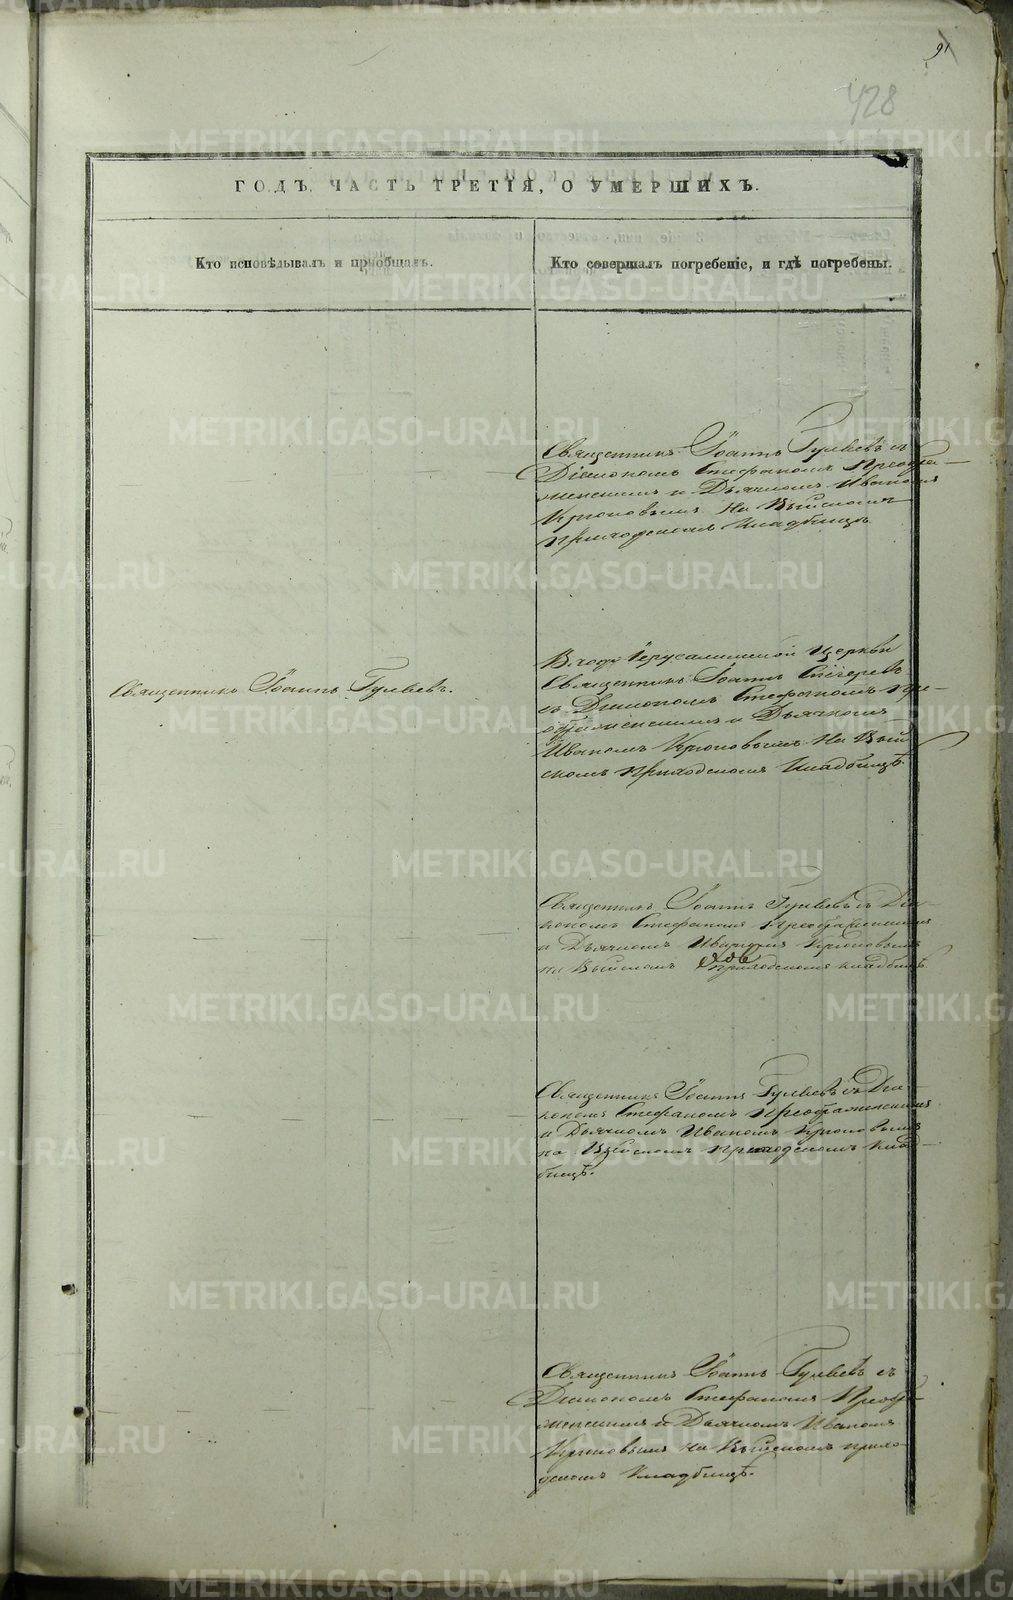 91
428
ГОДЪ, ЧАСТЬ ТРЕТІЯ, О УМЕРШИХЪ.
Кто исповѣдывалъ и пріобщалъ.
Кто совершалъ погребеніе, и гдѣ погребены.
Священникъ Іоаннъ Гуляевъ съ
Діакономъ Стефаномъ Преобра-
женскимъ и Дьячкомъ Иваномъ
Крюковымъ На Выйскомъ
Приходскомъ Кладбищѣ
Священникъ Іоаннъ Гуляевъ.
Входо Іерусалимской Церкви
Священникъ Іоаннъ
съ Діакономъ Стефаномъ Пре-
ображенскимъ и Дьячкомъ
Иваномъ Крюковымъ На Вый
скомъ Приходскомъ Кладбищѣ.
Священникъ Іоаннъ Гуляевъ съ Діа-
кономъ Стефаномъ Преображенскимъ
и Дьячкомъ Иваномъ Крюковымъ
на Выйскомъ приходскомъ кладбищѣ.
Священникъ Іоаннъ Гуляевъ съ Діа-
кономъ Стефаномъ Преображенскимъ
и Дьячкомъ Иваномъ Крюковымъ
на Выйскомъ Приходскомъ Клад-
бищѣ.
Священникъ Іоаннъ Гуляевъ съ
Діакономъ Стефаномъ Преобра-
женскимъ и Дьячкомъ Иваномъ
Крюковымъ На Выйскомъ прихо-
дскомъ Кладбищѣ.
METRIKI.GASO-URAL.RU